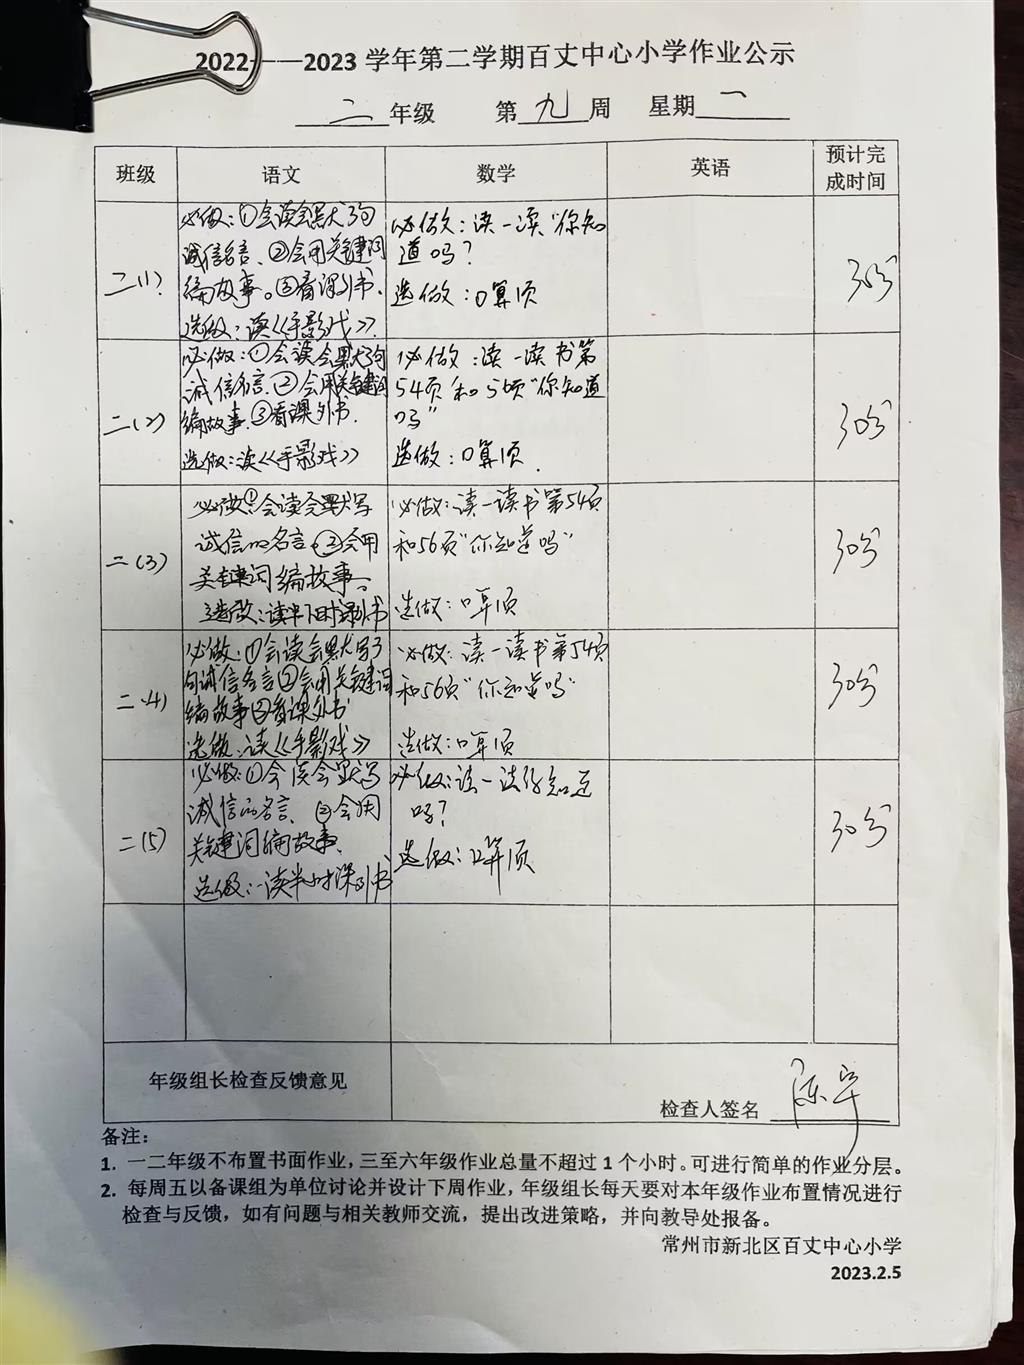 2022——2023 学年第二学期百丈中心小学作业公示
二 年级 第 九 周 星期 一
班级 语文 数学 英语 预计完成时间
二(1)
必做:①会读会默大写句
诚信名言、②会用关键词
编故事。③看课外书.
选做:读《手影戏》.
必做:读一读"你知
道吗?
选做:口算1页
30分
二(2)
必做:①会读会默大写句
诚信名言.②会用关键词
编故事.③看课外书.
选做:读《手影戏》
必做:读一读书第
54页和56页"你知道
吗"
选做:口算1页.
30分
二(3)
必做:①会读会默写
诚信的名言.②会用
关键词编故事。
选做:读半小时课外书
必做:读一读书第54页
和56页"你知道吗"
选做:口算1页
30分
二(4)
必做:①会读会默写3
句诚信名言②会用关键词
编故事③看课外书
选做:读《手影戏》
必做:读一读书第54页
和56页"你知道吗"
选做:口算1页
30分
二(5)
必做:①会读会默写
诚信的名言、②会用
关键词编故事.
选做:读半小时课外书
必做:读一读你知道
吗?
选做:口算1页
30分
年级组长检查反馈意见
检查人签名
备注:
1. 一二年级不布置书面作业,三至六年级作业总量不超过 1 个小时。可进行简单的作业分层。
2. 每周五以备课组为单位讨论并设计下周作业,年级组长每天要对本年级作业布置情况进行
检查与反馈,如有问题与相关教师交流,提出改进策略,并向教导处报备。
常州市新北区百丈中心小学
2023.2.5